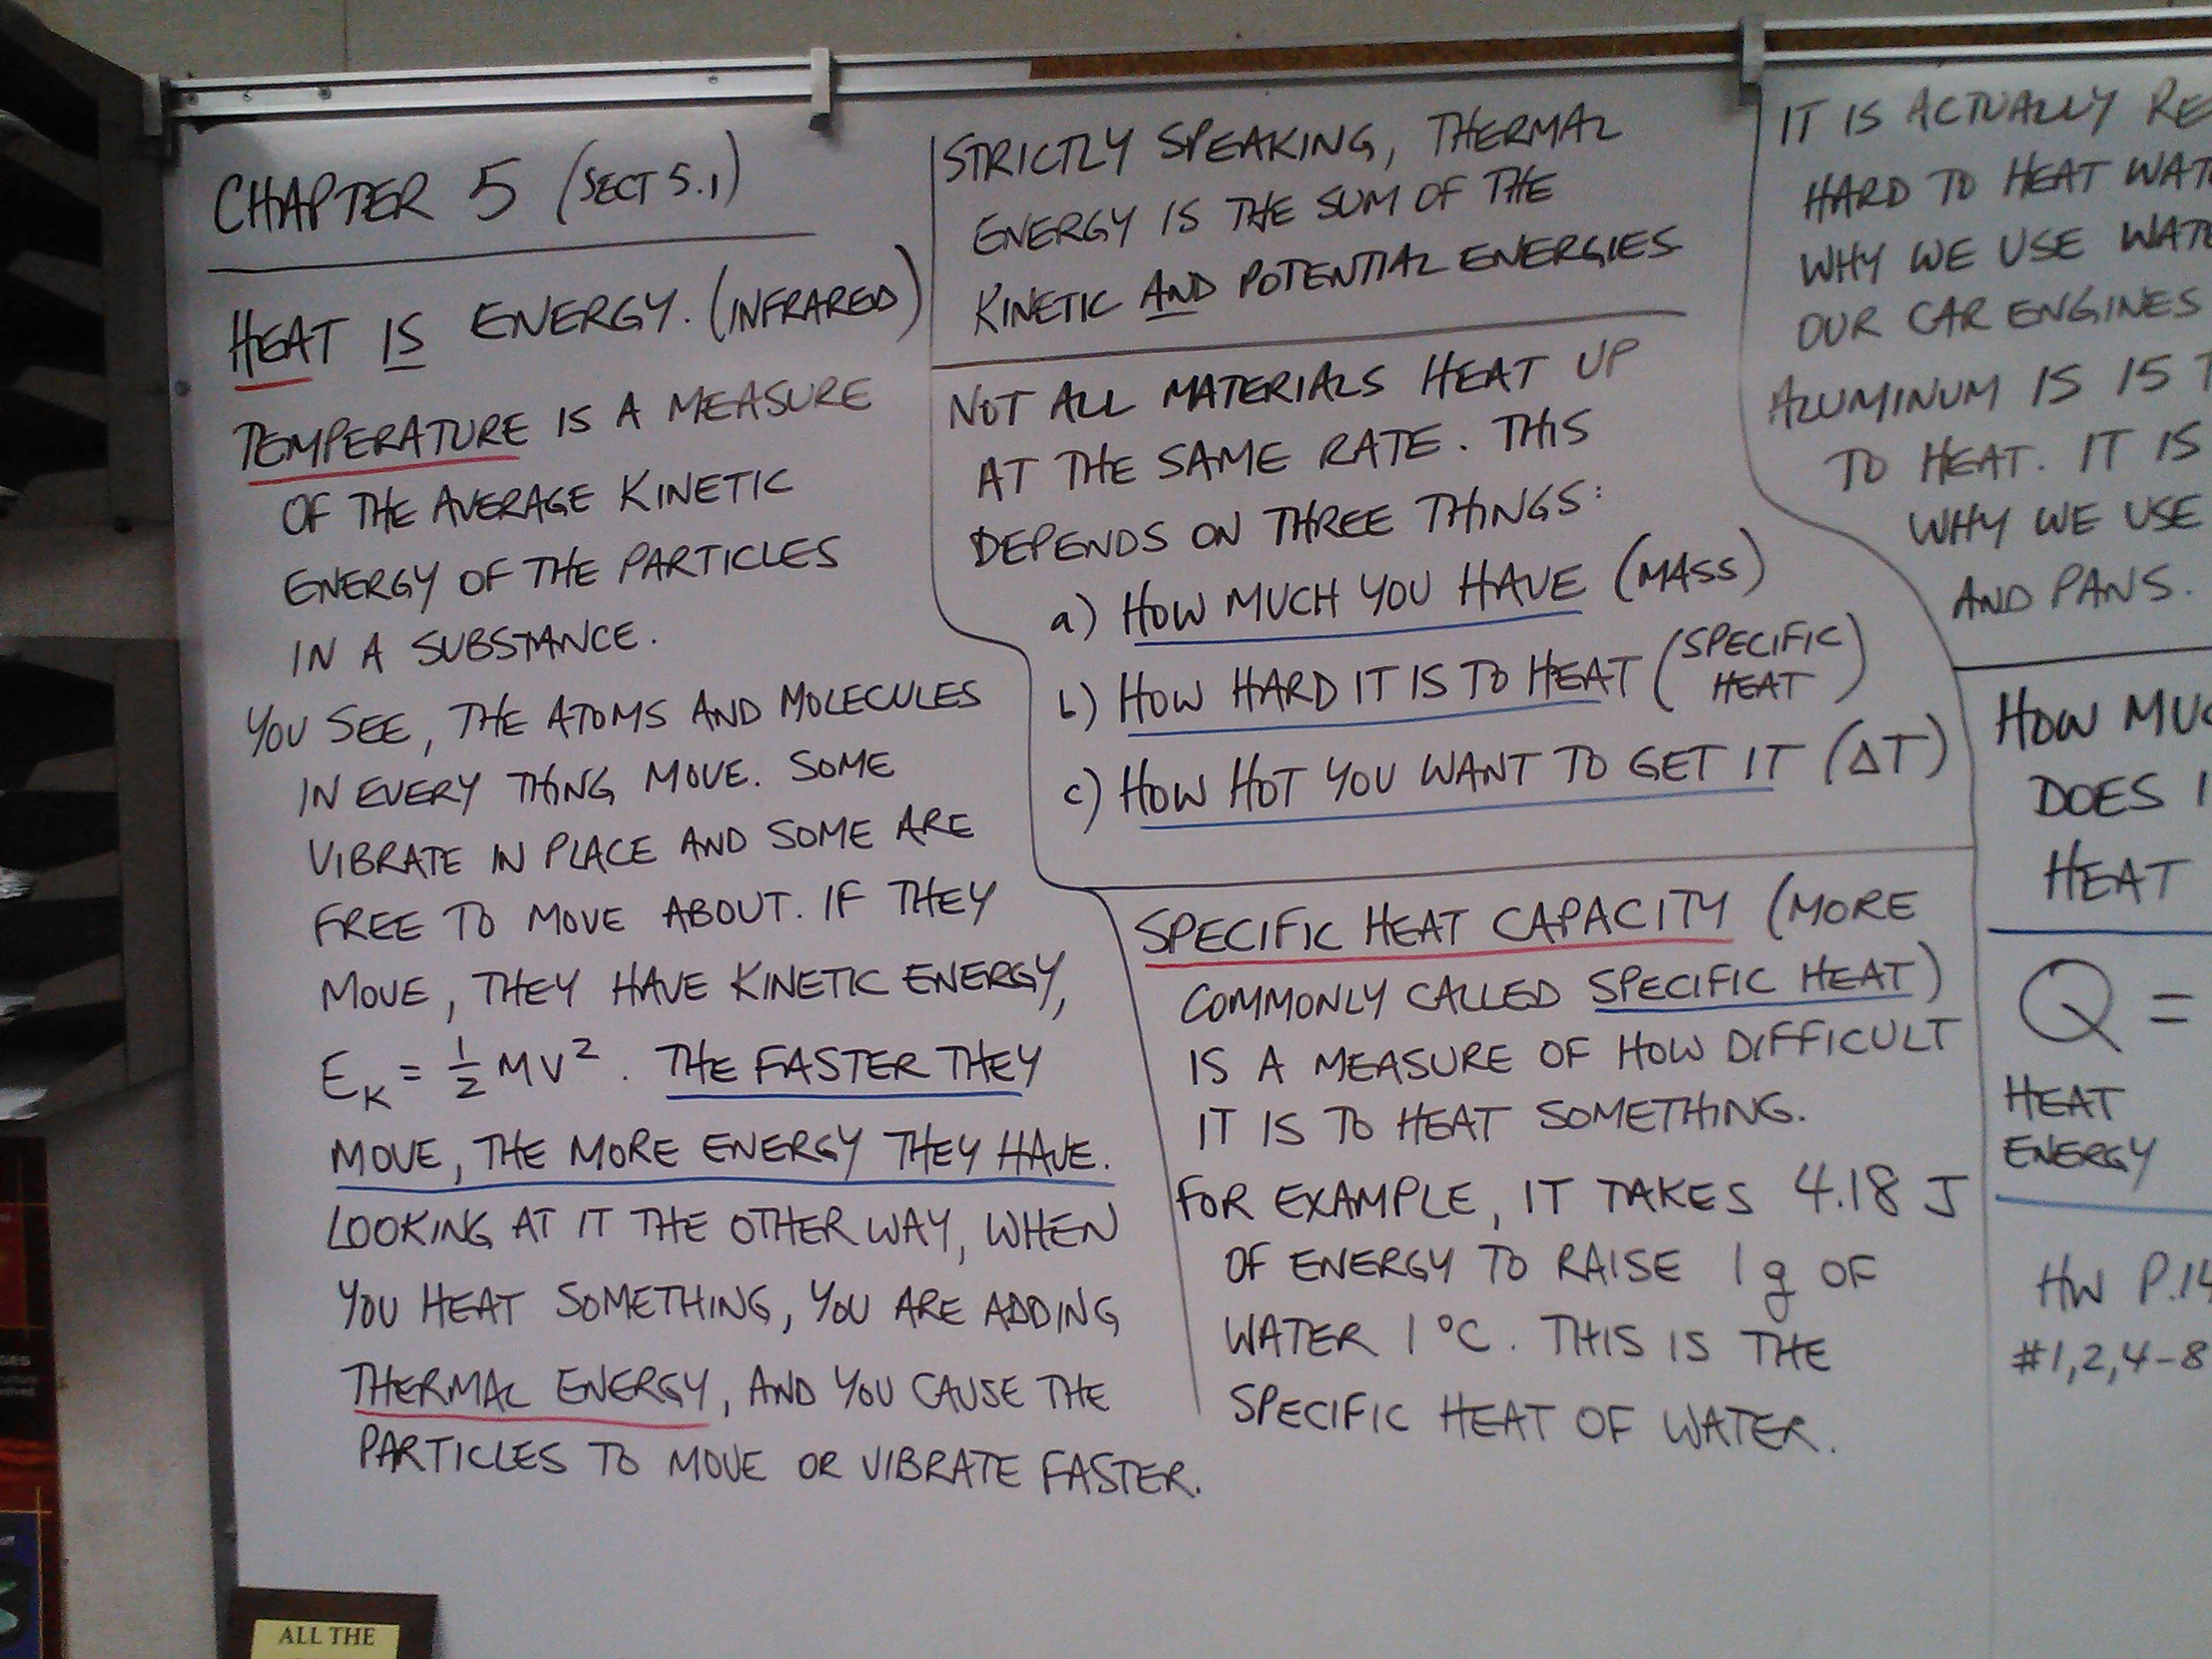 CHAPTER 5 (SECT 5.1)
HEAT IS ENERGY. (INFRARED)
TEMPERATURE IS A MEASURE
OF THE AVERAGE KINETIC
ENERGY OF THE PARTICLES
IN A SUBSTANCE.
YOU SEE, THE ATOMS AND MOLECULES
IN EVERY THING MOVE. SOME
VIBRATE IN PLACE AND SOME ARE
FREE TO MOVE ABOUT. IF THEY
MOVE, THEY HAVE KINETIC ENERGY,
EK = 1/2 MV². THE FASTER THEY
MOVE, THE MORE ENERGY THEY HAVE.
LOOKING AT IT THE OTHER WAY, WHEN
YOU HEAT SOMETHING, YOU ARE ADDING
THERMAL ENERGY, AND YOU CAUSE THE
PARTICLES TO MOVE OR VIBRATE FASTER.
STRICTLY SPEAKING, THERMAL
ENERGY IS THE SUM OF THE
KINETIC AND POTENTIAL ENERGIES
NOT ALL MATERIALS HEAT UP
AT THE SAME RATE. THIS
DEPENDS ON THREE THINGS:
a) HOW MUCH YOU HAVE (MASS)
b) HOW HARD IT IS TO HEAT (SPECIFIC
HEAT)
c) HOW HOT YOU WANT TO GET IT (ΔT)
SPECIFIC HEAT CAPACITY (MORE
COMMONLY CALLED SPECIFIC HEAT)
IS A MEASURE OF HOW DIFFICULT
IT IS TO HEAT SOMETHING.
FOR EXAMPLE, IT TAKES 4.18 J
OF ENERGY TO RAISE 1 g OF
WATER 1 °C. THIS IS THE
SPECIFIC HEAT OF WATER.
IT IS ACTUALLY RE
HARD TO HEAT WAT
WHY WE USE WAT
OUR CAR ENGINES
ALUMINUM IS 15 T
TO HEAT. IT IS
WHY WE USE
AND PANS.
HOW MUC
DOES I
HEAT
Q =
HEAT
ENERGY
HW P.14
#1,2,4-8
ALL THE